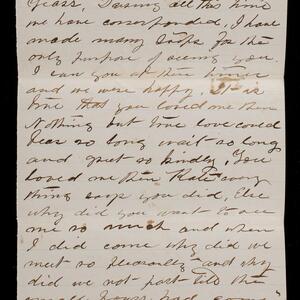 years. During all this time
we have corresponded, I have
made many trips for the
only purpose of seeing you.
I saw you at these times
and we were happy. It is
true that you loved me then
Nothing but true love could
bear so long wait so long
and greet so kindly. You
loved me then Kate every
thing says you did. Else
why did you want to see
me so much and when
I did come why did we
meet so pleasantly and why
did we not part till the
small hours had come